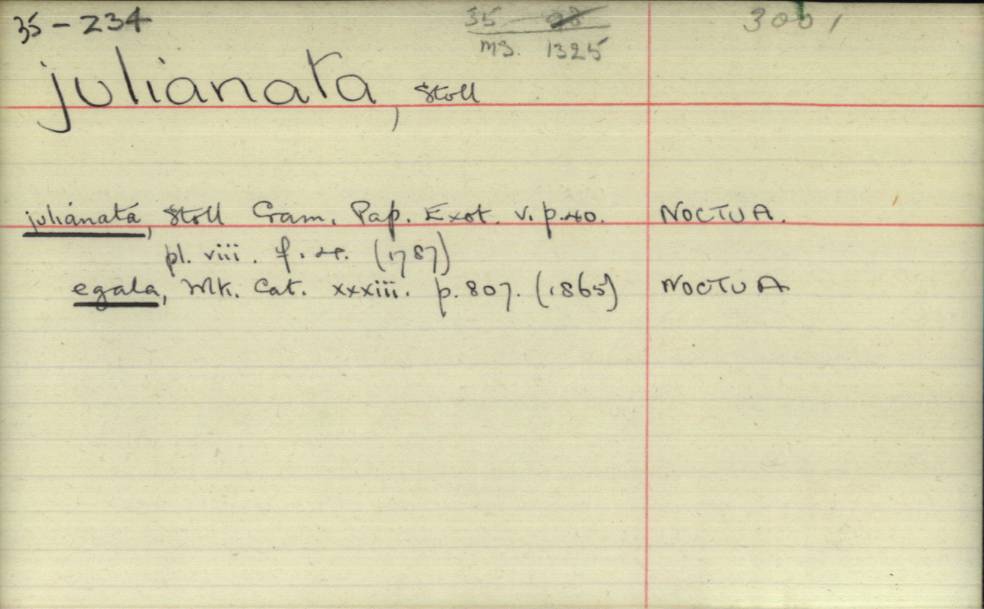 35-234
35
ms. 1325
3001
julianata, Stoll
julianata, Stoll Cram. Pap. Exot. v. p.40. NOCTUA.
pl. viii. f. 4. (1787)
egala, Wlk. Cat. xxxiii. p.807. (1865) NOCTUA